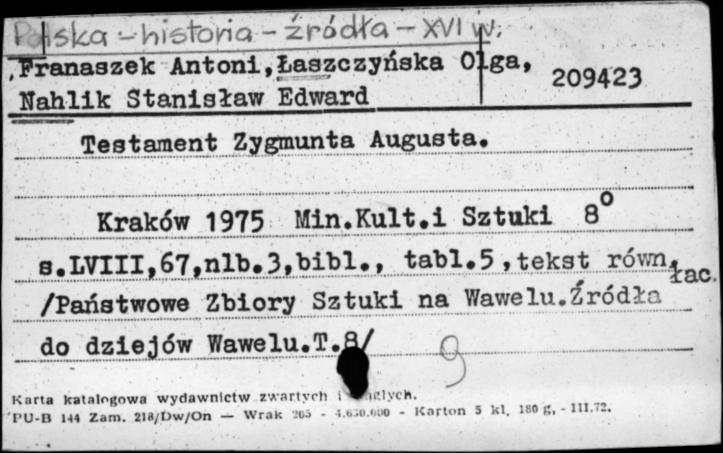 Polska - historia - źródła - XVI w.
Franaszek Antoni, Łaszczyńska Olga,
209423
Nahlik Stanisław Edward
Testament Zygmunta Augusta.
Kraków 1975 Min.Kult.i Sztuki 8°
s.LVIII,67,nlb.3,bibl., tabl.5,tekst równ.
łac.
/Państwowe Zbiory Sztuki na Wawelu.Źródła
do dziejów Wawelu.T.8/
9
Karta katalogowa wydawnictw zwartych i
PU-B 144 Zam. 218/Dw/On — Wrak 205 - 4.630.000 - Karton 5 kl. 180 g, - III.72.